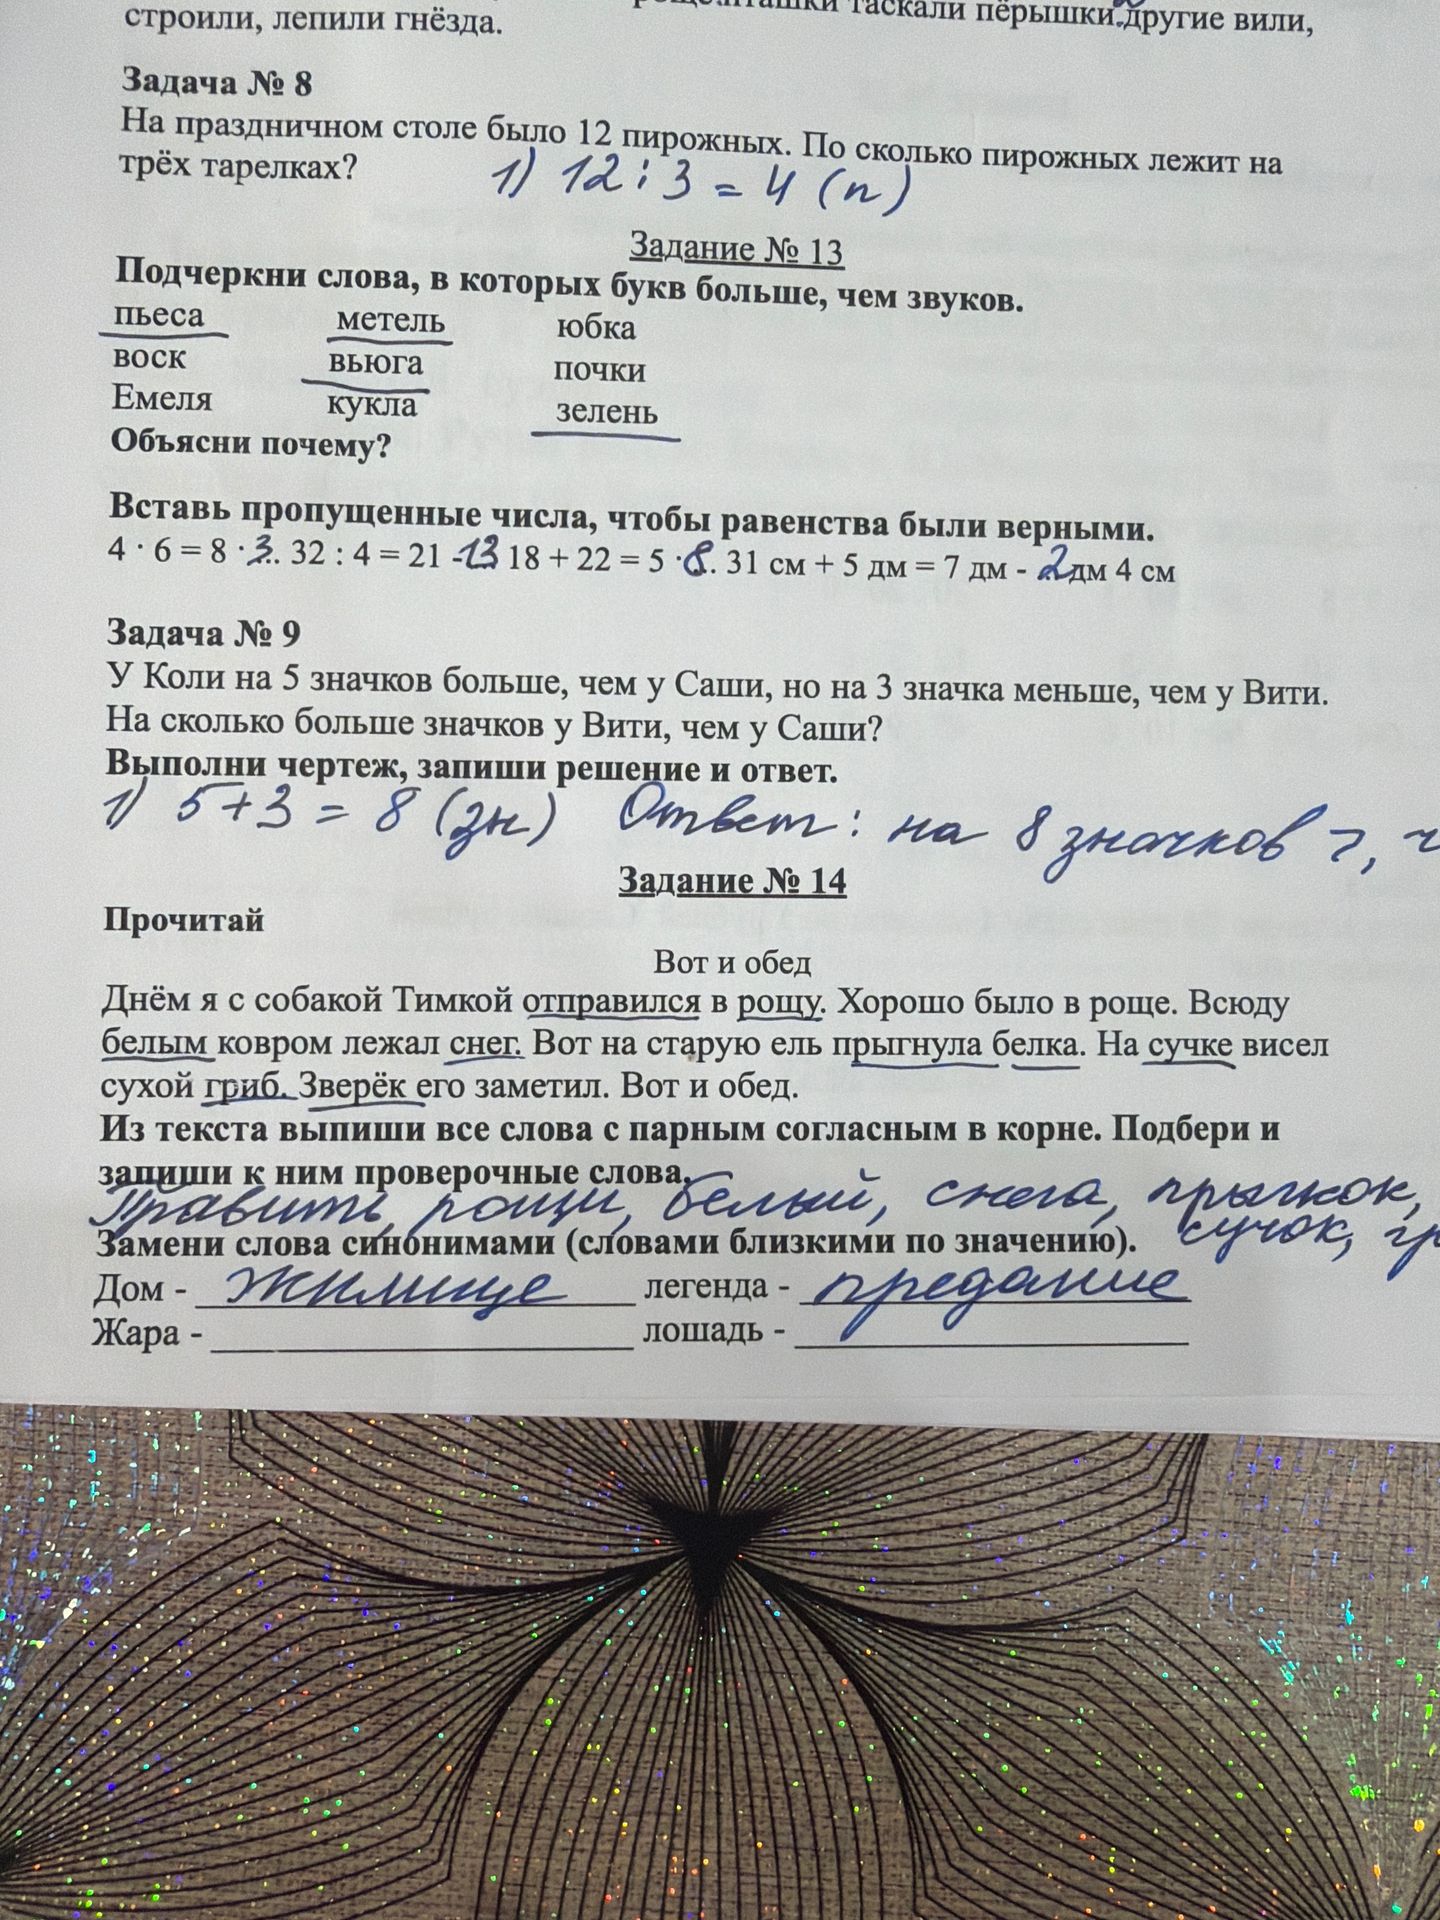 таскали пёрышки. другие вили,
строили, лепили гнёзда.
Задача № 8
На праздничном столе было 12 пирожных. По сколько пирожных лежит на
трёх тарелках? 1) 12 : 3 = 4 (п)
Задание № 13
Подчеркни слова, в которых букв больше, чем звуков.
пьеса метель юбка
воск вьюга почки
Емеля кукла зелень
Объясни почему?
Вставь пропущенные числа, чтобы равенства были верными.
4 · 6 = 8 · 3.. 32 : 4 = 21 - 13 18 + 22 = 5 · 8.. 31 см + 5 дм = 7 дм - 2 дм 4 см
Задача № 9
У Коли на 5 значков больше, чем у Саши, но на 3 значка меньше, чем у Вити.
На сколько больше значков у Вити, чем у Саши?
Выполни чертеж, запиши решение и ответ.
1) 5 + 3 = 8 (зн) Ответ: на 8 значков >, ч
Задание № 14
Прочитай
Вот и обед
Днём я с собакой Тимкой отправился в рощу. Хорошо было в роще. Всюду
белым ковром лежал снег. Вот на старую ель прыгнула белка. На сучке висел
сухой гриб. Зверёк его заметил. Вот и обед.
Из текста выпиши все слова с парным согласным в корне. Подбери и
запиши к ним проверочные слова.
Править, рощи, белый, снега, прыжок,
сучок, гр
Замени слова синонимами (словами близкими по значению).
Дом - жилище легенда - предание
Жара - лошадь -